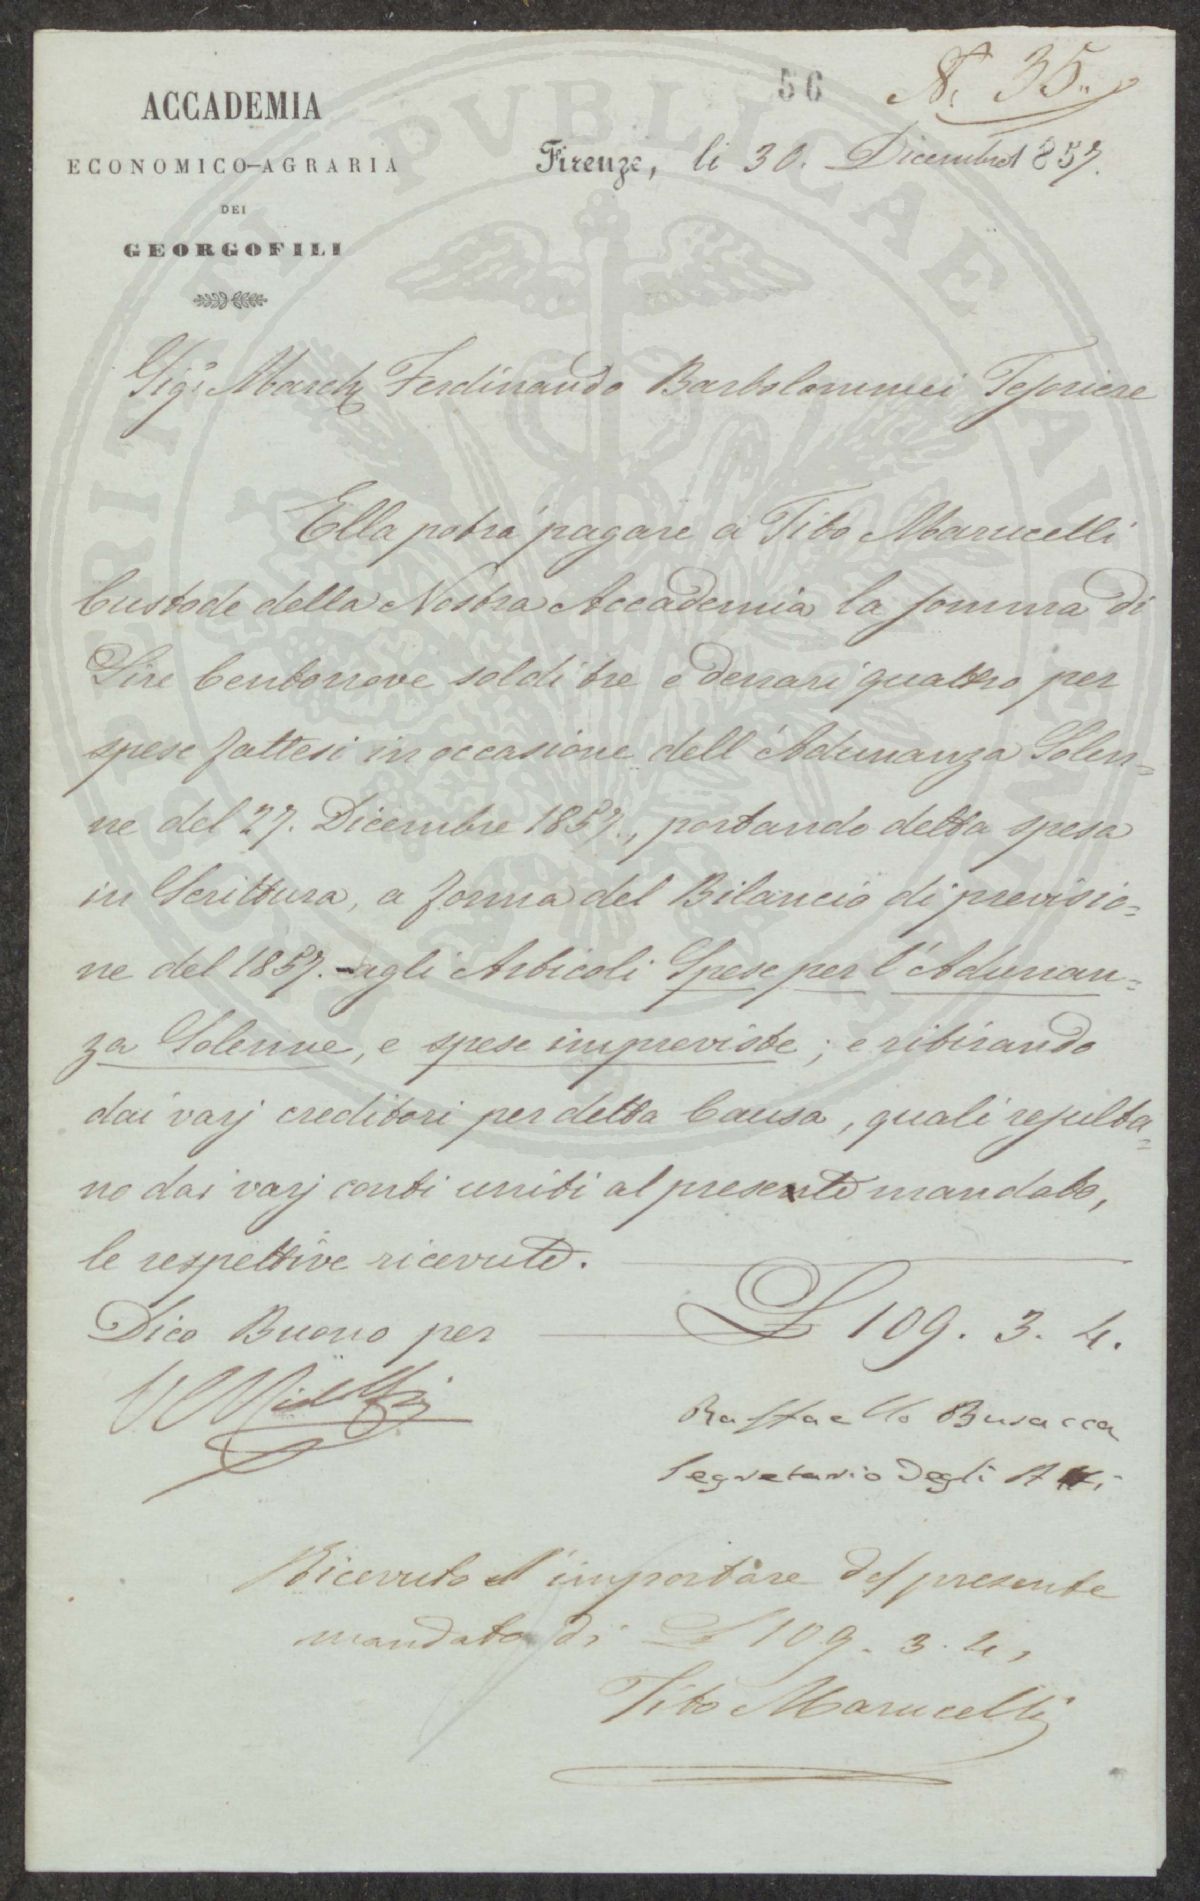 56
N. 35.
ACCADEMIA
ECONOMICO-AGRARIA
DEI
GEORGOFILI
Firenze, li 30. Dicembre 1857.
Sigr. March. Ferdinando Bartolommei Tesoriere
Ella potrà pagare a Tito Marucelli
Custode della Nostra Accademia la somma di
Lire Centonove soldi tre e denari quattro per
spese fattesi in occasione dell'Adunanza Solen=
ne del 27. Dicembre 1857., portando detta spesa
in Scrittura, a forma del Bilancio di previsio=
ne del 1857. agli Articoli Spese per l'Adunan=
za Solenne, e spese impreviste; e ritirando
dai varj creditori per detta Causa, quali resulta=
no dai varj conti uniti al presente mandato,
le respettive ricevute.
Dico Buono per L 109. 3. 4.
Raffaello Busacca
Segretario degli Atti
Ricevuto l'importare del presente
mandato di L 109. 3. 4.
Tito Marucelli